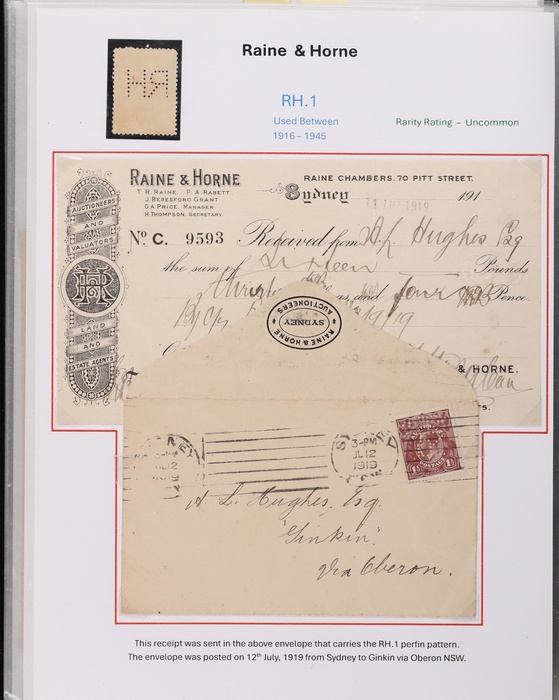 Raine & Horne
RH.1
Used Between
1916 – 1945
Rarity Rating – Uncommon
RAINE & HORNE
T. R. RAINE. P. A. RABETT
J. BERESFORD GRANT
G.A. PRICE, MANAGER
H. THOMPSON, SECRETARY
RAINE CHAMBERS. 70 PITT STREET.
Sydney 191
AUCTIONEERS
AND
VALUATORS
LAND
AND
ESTATE AGENTS
No. C. 9593 Received from A L Hughes Esq
the sum of Pounds
and four Pence
& HORNE.
RAINE & HORNE
SYDNEY
AUCTIONEERS
3-PM
JL 12
1919
A L Hughes, Esq.
"Ginkin".
Via Oberon.
This receipt was sent in the above envelope that carries the RH.1 perfin pattern.
The envelope was posted on 12th July, 1919 from Sydney to Ginkin via Oberon NSW.